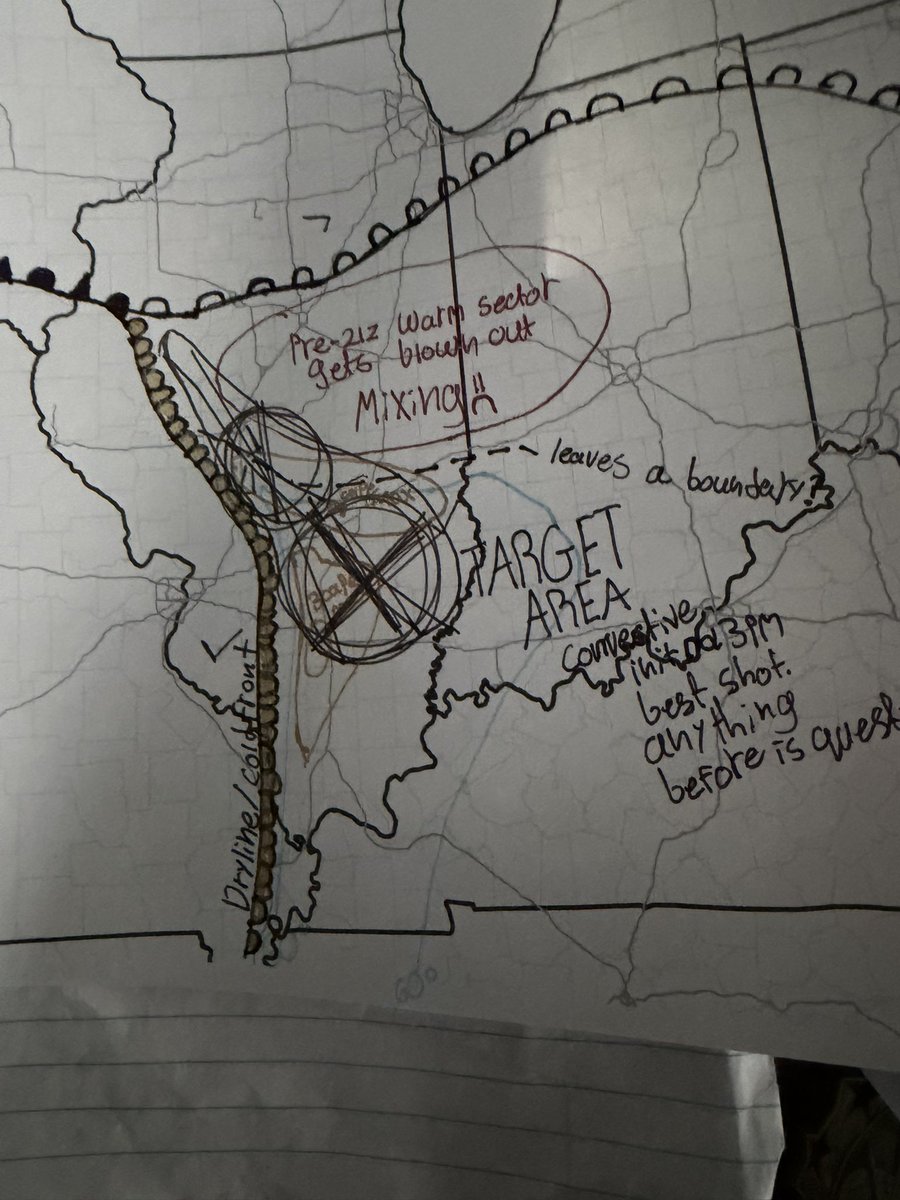 Pre-21z warm sector
gets blown out
Mixing
leaves a boundary?
TARGET
AREA
convective
3PM
best shot.
anything
before is quest
Dryline/cold front
60°